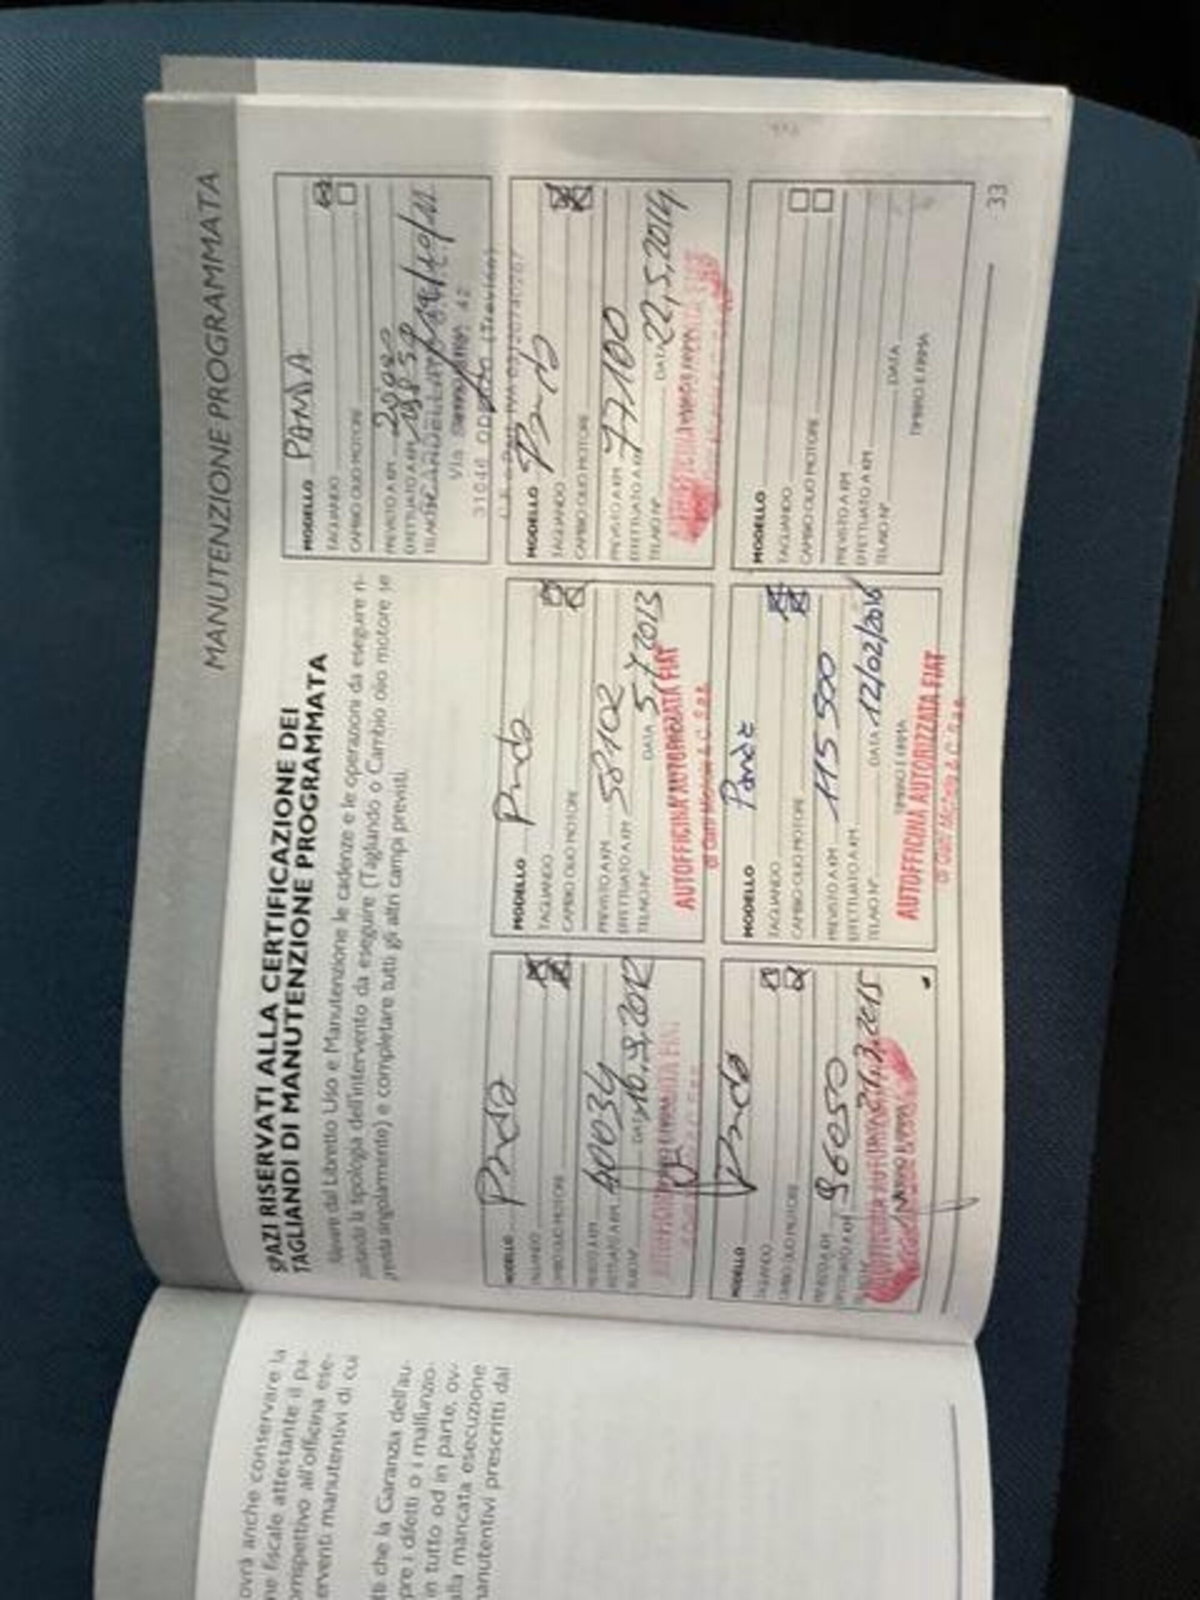 ovrà anche conservare la
ne fiscale attestante il pa-
orrispettivo all'officina ese-
erventi manutentivi di cui
tti che la Garanzia dell'au-
pre i difetti o i malfunzio-
in tutto od in parte, ov-
alla mancata esecuzione
manutentivi prescritti dal
MANUTENZIONE PROGRAMMATA
SPAZI RISERVATI ALLA CERTIFICAZIONE DEI
TAGLIANDI DI MANUTENZIONE PROGRAMMATA
dal Libretto Uso e Manutenzione le cadenze e le operazioni da eseguire
la tipologia dell'intervento da eseguire (Tagliando o Cambio olio motore se
singolarmente) e completare tutti gli altri campi previsti.
MODELLO PANDA
TAGLIANDO
CAMBIO OLIO MOTORE
PREVISTO A KM
EFFETTUATO A KM
TELAIO
Via 42
31046 (Treviso)
MODELLO Panda
TAGLIANDO
CAMBIO OLIO MOTORE
PREVISTO A KM
EFFETTUATO A KM 40034
DATA 10.9.2012
MODELLO Panda
TAGLIANDO
CAMBIO OLIO MOTORE
PREVISTO A KM
EFFETTUATO A KM 58102
TELAIO N° DATA 5.7.2013
AUTOFFICINA AUTORIZZATA FIAT
MODELLO Panda
TAGLIANDO
CAMBIO OLIO MOTORE
PREVISTO A KM
EFFETTUATO A KM 77100
TELAIO N° DATA 22.5.2014
MODELLO Panda
TAGLIANDO
CAMBIO OLIO MOTORE
PREVISTO A KM
EFFETTUATO A KM 96050
MODELLO Panda
TAGLIANDO
CAMBIO OLIO MOTORE
PREVISTO A KM 115500
EFFETTUATO A KM
TELAIO N° DATA 12/02/2016
TIMBRO E FIRMA
AUTOFFICINA AUTORIZZATA FIAT
MODELLO
TAGLIANDO
CAMBIO OLIO MOTORE
PREVISTO A KM
EFFETTUATO A KM
TELAIO N° DATA
TIMBRO E FIRMA
33